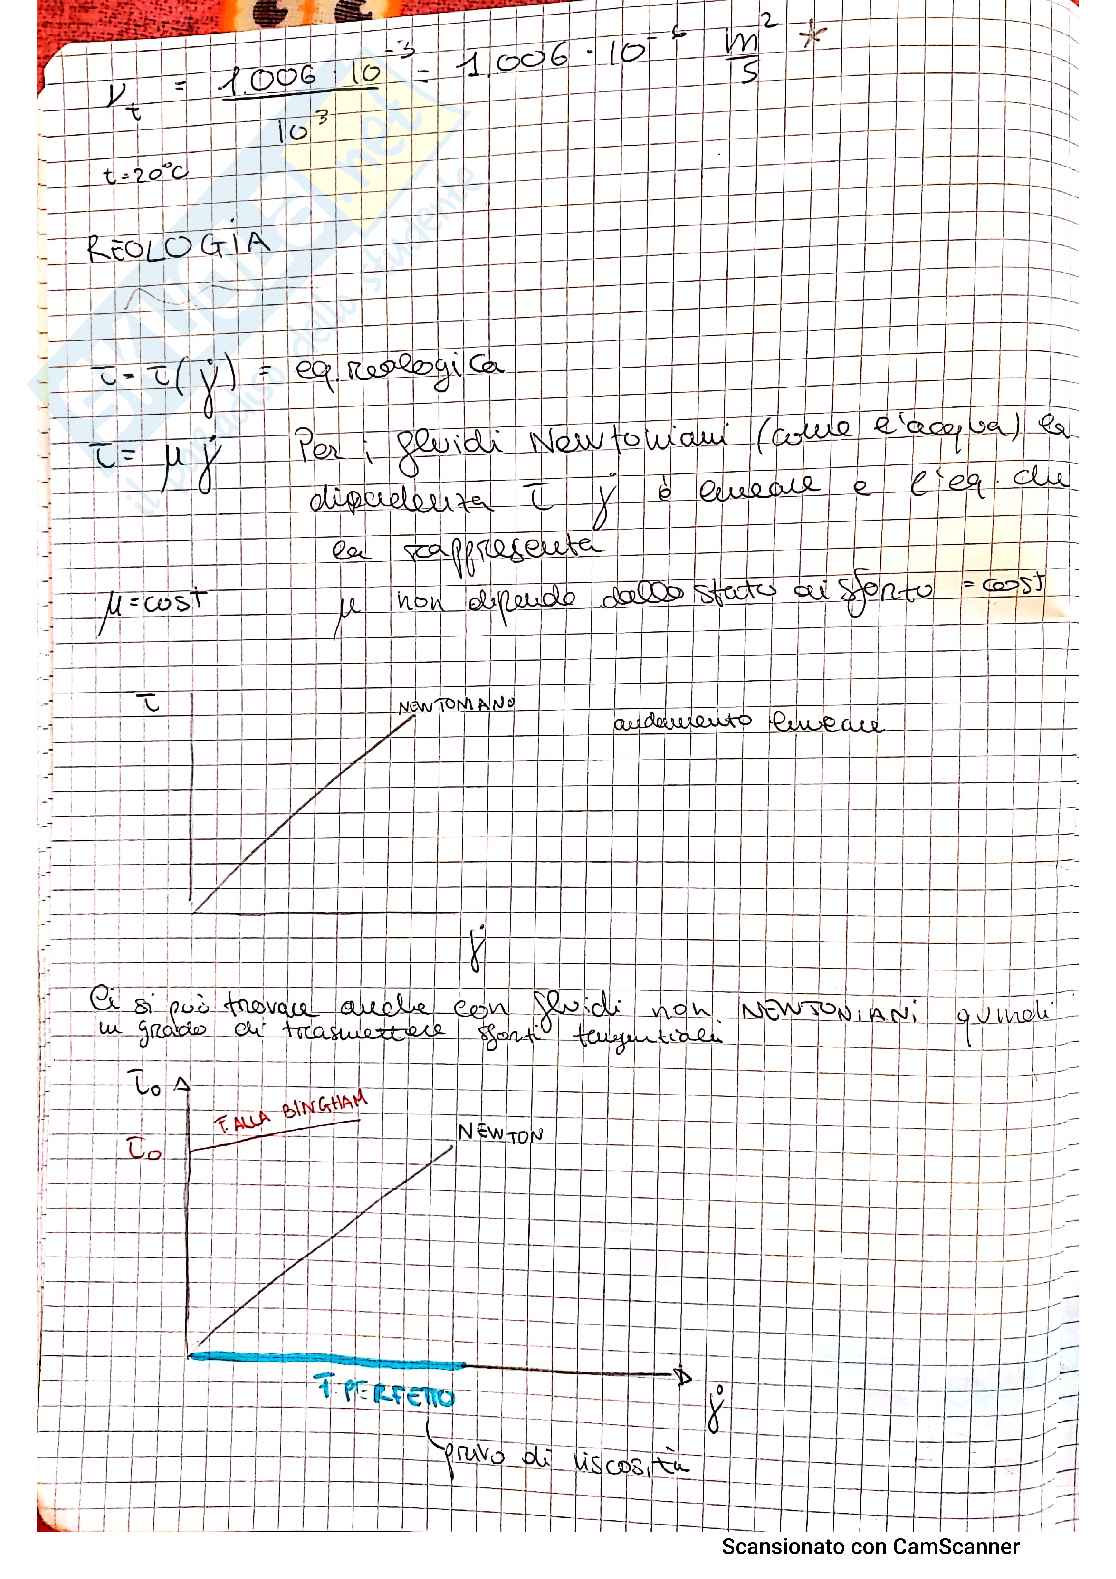 ν_t = 1.006 · 10^-3 / 10^3 = 1,006 · 10^-6 m^2/s *
t=20°C
REOLOGIA
τ = τ(γ̇) = eq. reologica
τ = μ γ̇ Per i fluidi Newtoniani (come l'acqua) la
dipendenza τ γ̇ è lineare e l'eq. che
la rappresenta
μ = cost μ non dipende dallo stato di sforzo = cost
τ
NEWTONIANO
andamento lineare
γ̇
Ci si può trovare anche con fluidi non NEWTONIANI quindi
in grado di trasmettere sforzi tangenziali
τ0
F. ALLA BINGHAM
τ0
NEWTON
F. PERFETTO
γ̇
privo di viscosità
Scansionato con CamScanner